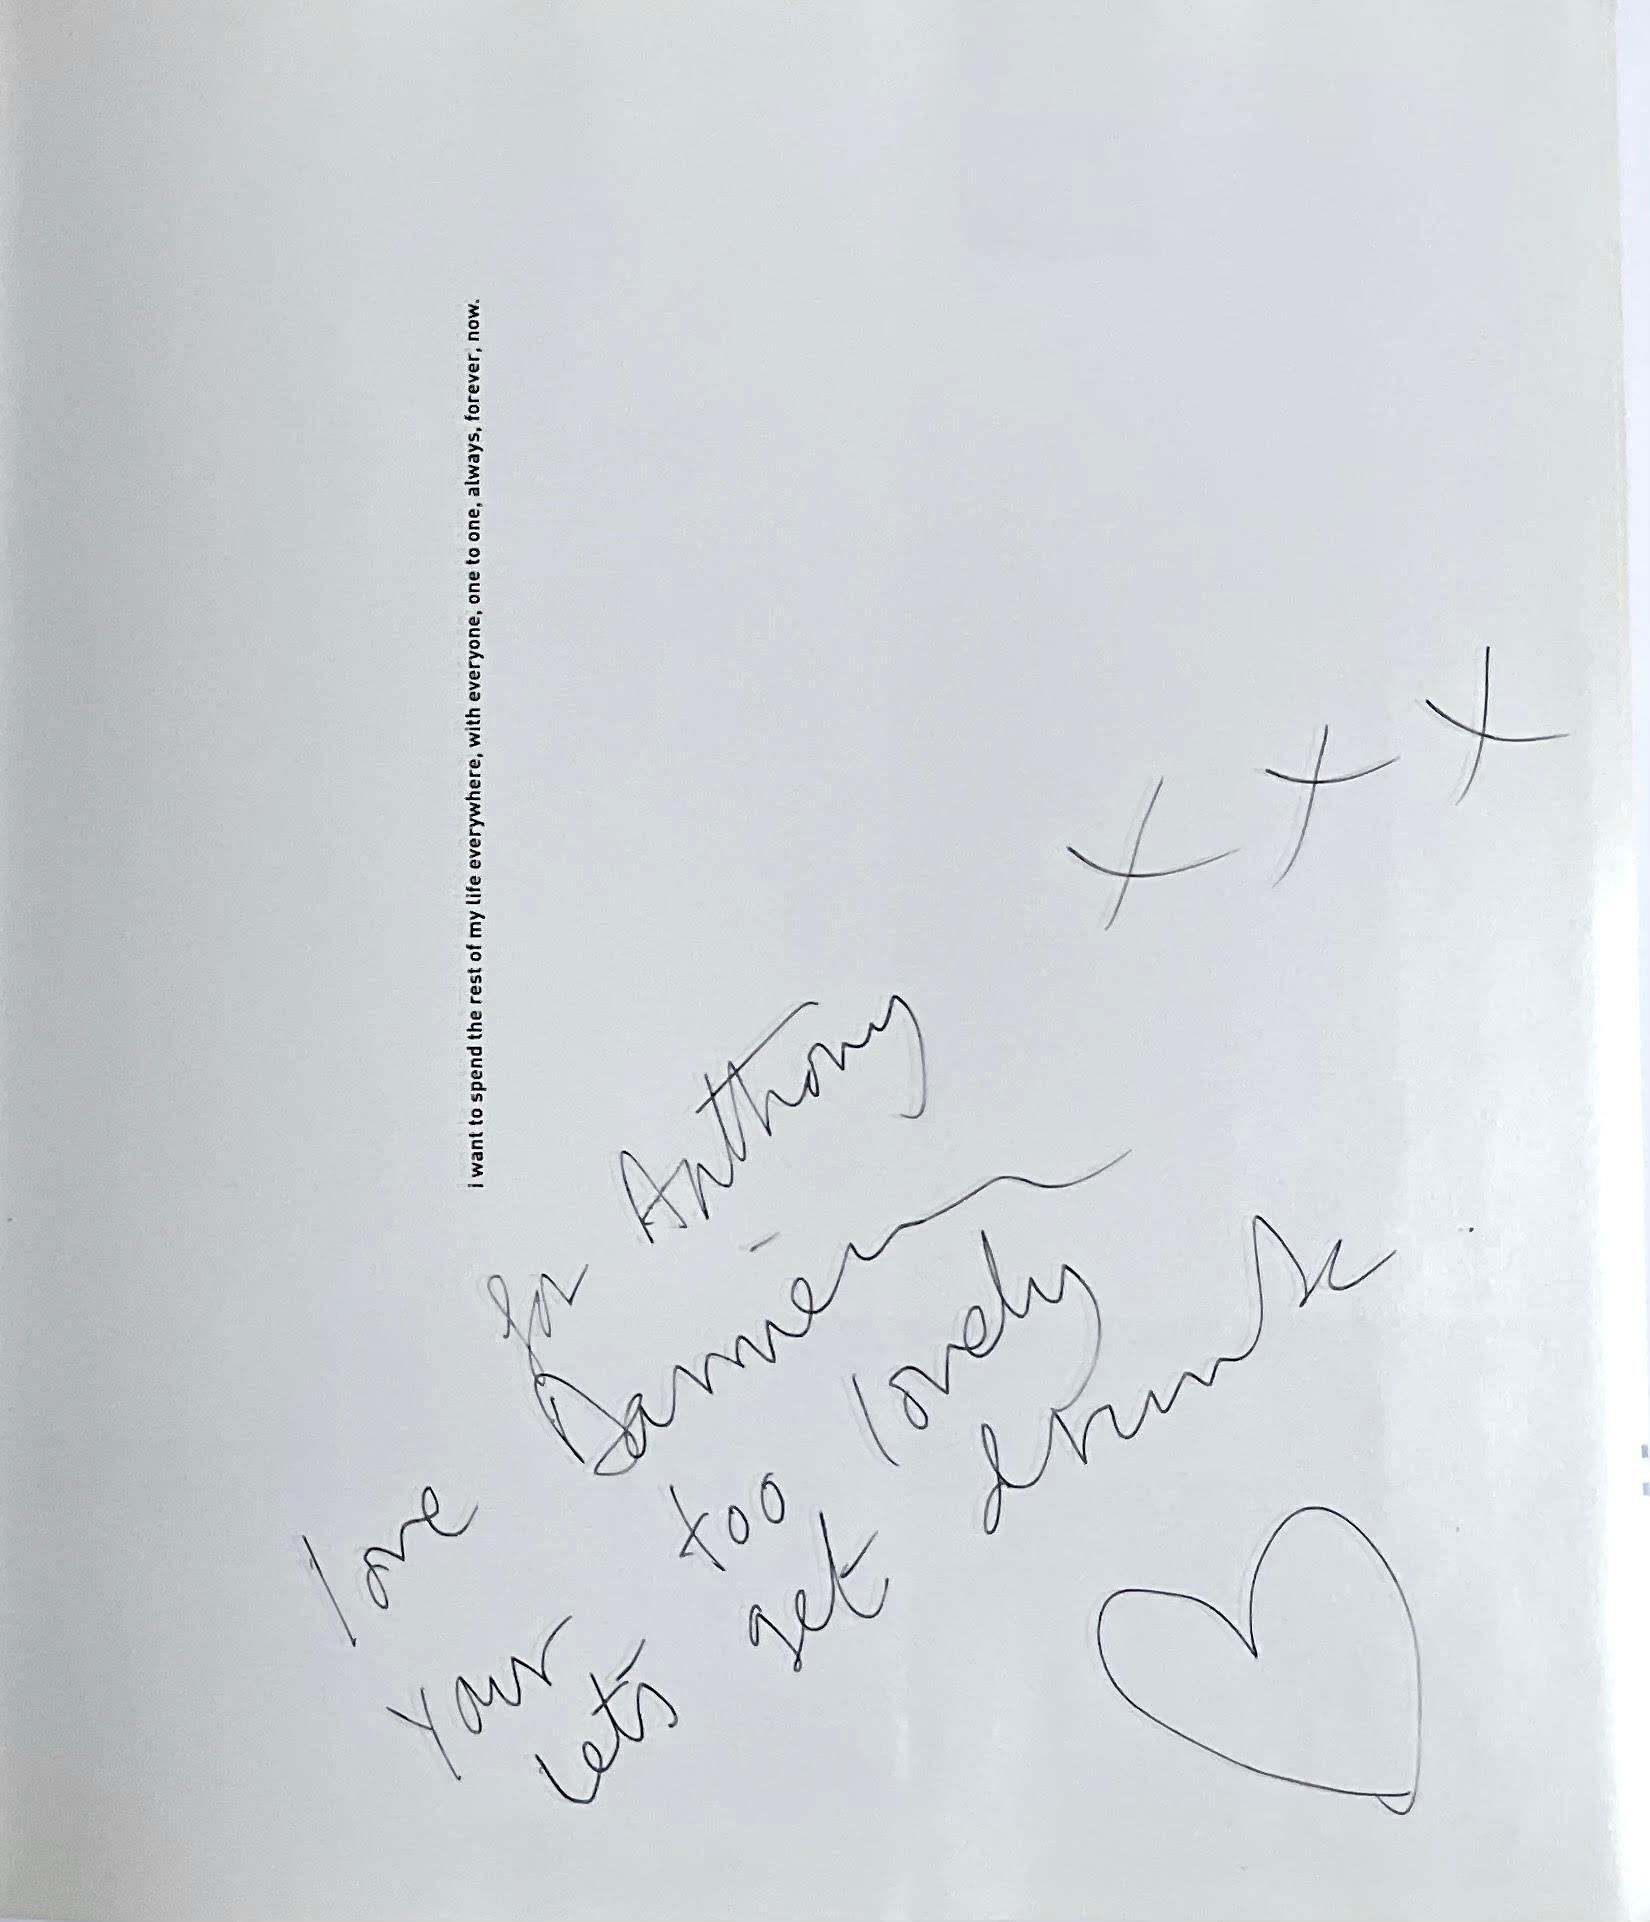 i want to spend the rest of my life everywhere, with everyone, one to one, always, forever, now.
for Anthony
love Damien
Your too lovely
lets get drunk
x x x